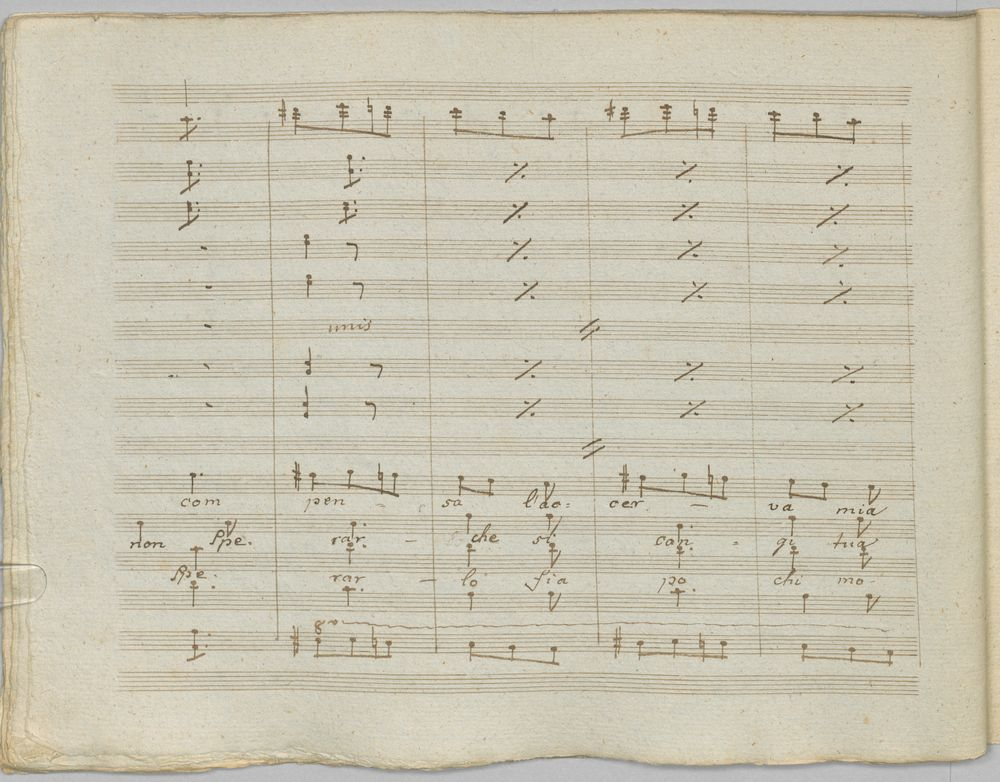 unis
com pen - sa l'ao= cer - va mia
non Spe. rar. - che si can. = gi tua
Spe. rar - lo fia po chi mo-
8va